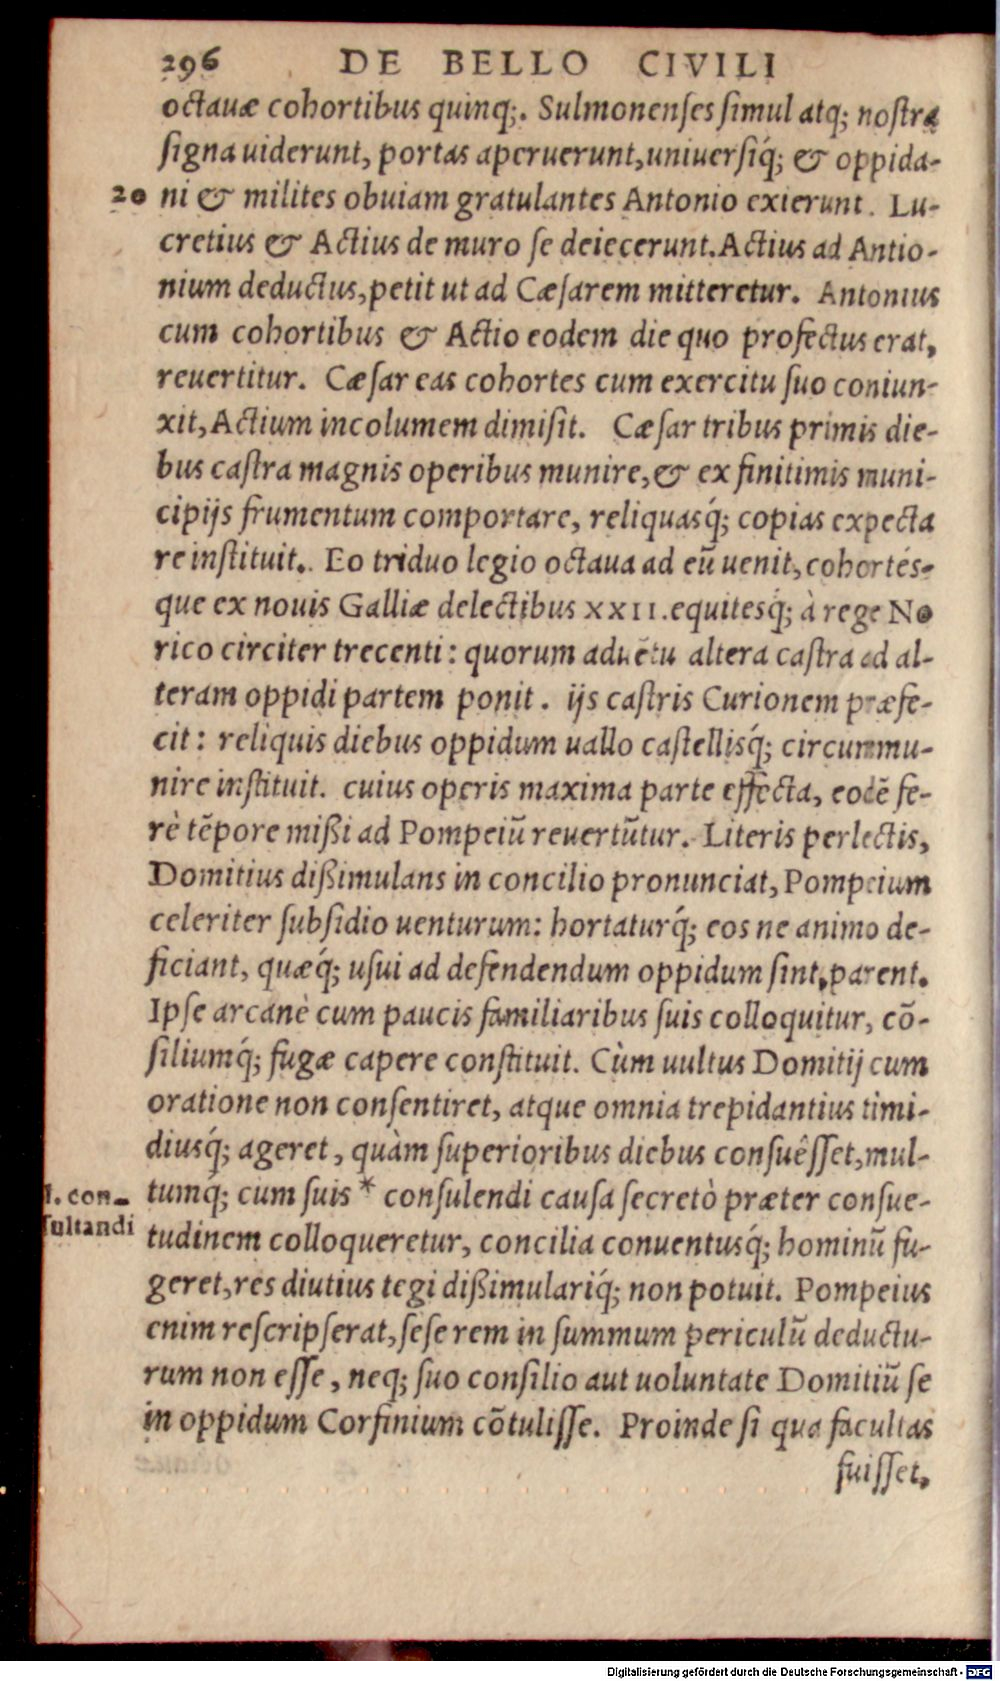 296 DE BELLO CIVILI
octauæ cohortibus quinq;. Sulmonenſes ſimul atq; noſtra
ſigna uiderunt, portas aperuerunt, uniuerſiq́; & oppida-
20 ni & milites obuiam gratulantes Antonio exierunt. Lu-
cretius & Actius de muro ſe deiecerunt. Actius ad Antio-
nium deductus, petit ut ad Cæſarem mitteretur. Antonius
cum cohortibus & Actio eodem die quo profectus erat,
reuertitur. Cæſar eas cohortes cum exercitu ſuo coniun-
xit, Actium incolumem dimiſit. Cæſar tribus primis die-
bus caſtra magnis operibus munire, & ex finitimis muni-
cipijs frumentum comportare, reliquasq́; copias expecta
re inſtituit. Eo triduo legio octaua ad eũ uenit, cohortés-
que ex nouis Galliæ delectibus XXII. equitesq́; à rege No
rico circiter trecenti: quorum aduẽtu altera caſtra ad al-
teram oppidi partem ponit. ijs caſtris Curionem præfe-
cit: reliquis diebus oppidum uallo caſtellisq́; circummu-
nire inſtituit. cuius operis maxima parte effecta, eodẽ fe-
rè tẽpore mißi ad Pompeiũ reuertũtur. Literis perlectis,
Domitius dißimulans in concilio pronunciat, Pompeium
celeriter ſubſidio uenturum: hortaturq́; eos ne animo de-
ficiant, quæq́; uſui ad defendendum oppidum ſint, parent.
Ipſe arcanè cum paucis familiaribus ſuis colloquitur, cõ-
ſiliumq́; fugæ capere conſtituit. Cùm uultus Domitij cum
oratione non conſentiret, atque omnia trepidantius timi-
diusq́; ageret, quàm ſuperioribus diebus conſuêſſet, mul-
tumq́; cum ſuis * conſulendi cauſa ſecretò præter conſue-
tudinem colloqueretur, concilia conuentusq́; hominũ fu-
geret, res diutius tegi dißimulariq́; non potuit. Pompeius
enim reſcripſerat, ſeſe rem in ſummum periculũ deductu-
rum non eſſe, neq; ſuo conſilio aut uoluntate Domitiũ ſe
in oppidum Corfinium cõtuliſſe. Proinde ſi qua facultas
fuiſſet,
l. con-
ſultandi
Digitalisierung gefördert durch die Deutsche Forschungsgemeinschaft - DFG